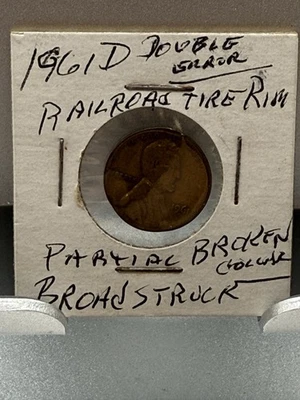 1961D DOUBLE
ERROR
RAILROAD TIRE RIM
PARTIAL BROKEN
COLLAR
BROADSTRUCK